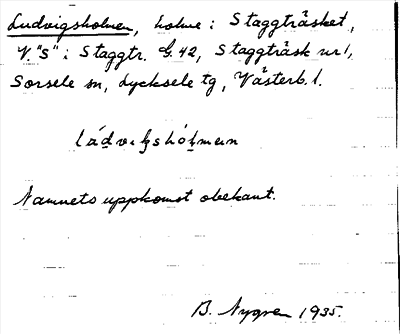 Ludvigsholmen, holme i Staggträsket,
V. "S" i Staggtr. G.42, Staggträsk nr 1,
Sorsele sn, Lycksele tg, Västerb. l.
Namnets uppkomst obekant.
B. Nygren 1935.